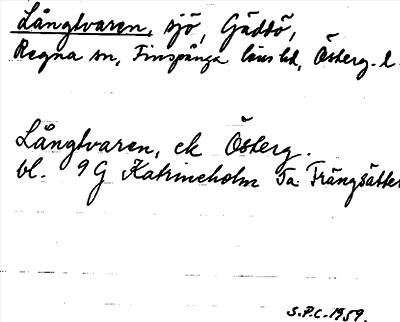 Långtvaren, sjö, Gädtö,
Regna sn, Finspånga läns hd, Österg. l.
Långtvaren, ek Österg.
bl. 9 G Katrineholm Ta Trängsätter
S.P.C. 1959.